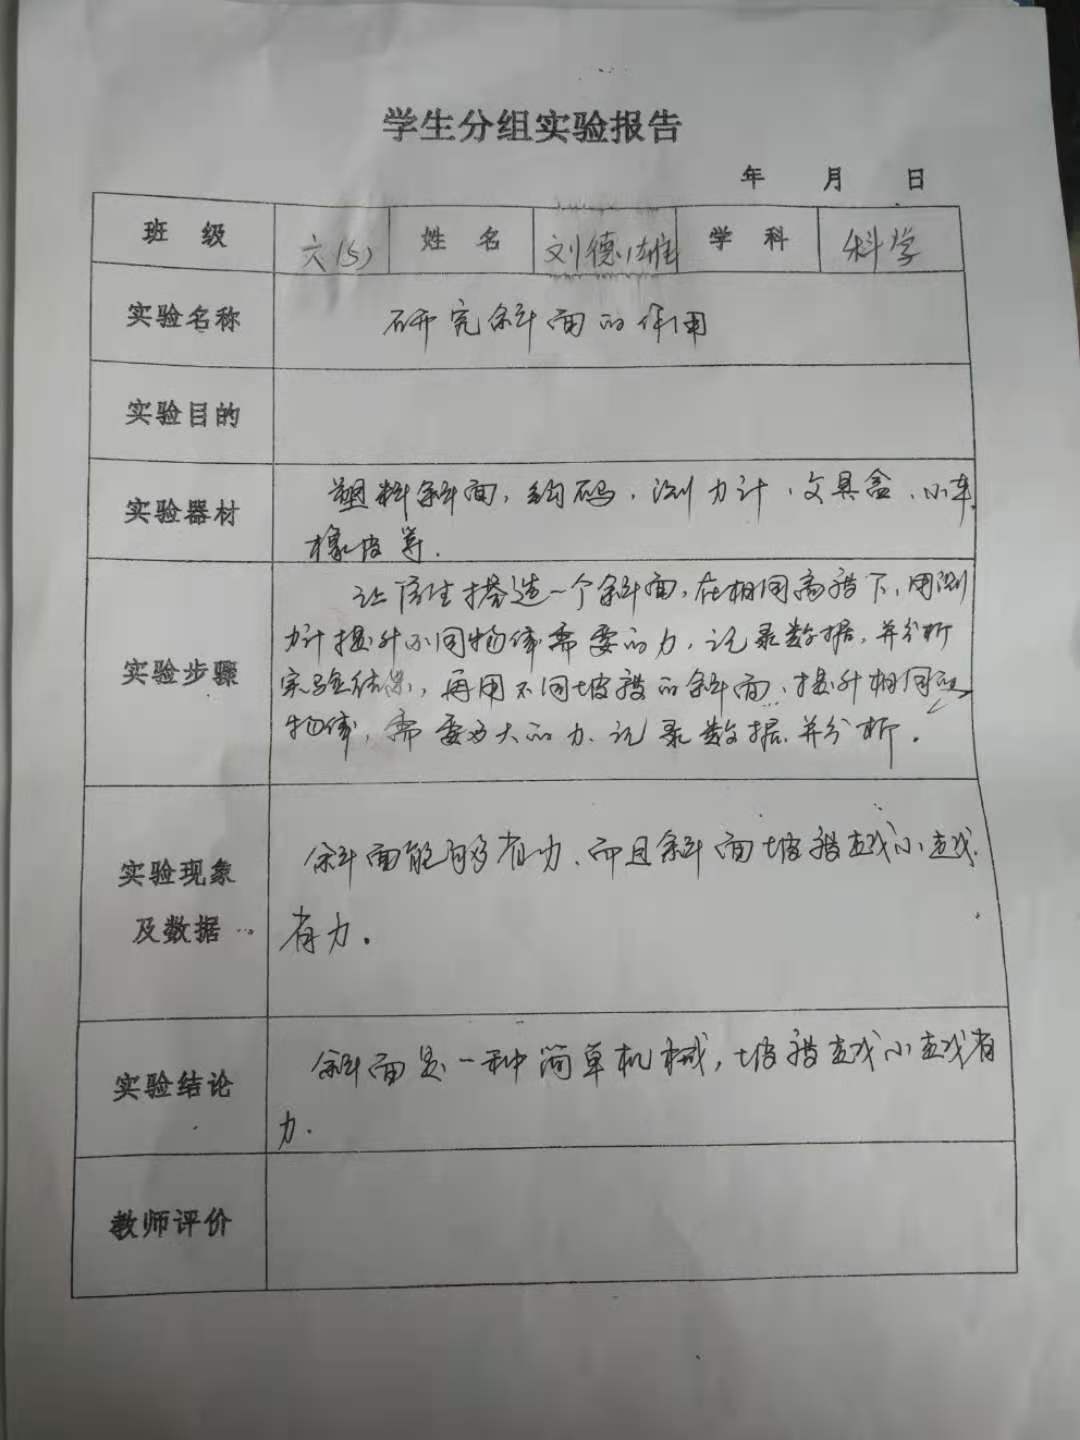 学生分组实验报告
年 月 日
班 级 六(5) 姓 名 刘德雄 学 科 科学
实验名称 研究斜面的作用
实验目的
实验器材 塑料斜面、钩码、测力计、文具盒、小车
橡皮等.
实验步骤 让学生搭造一个斜面,在相同高度下,用测
力计提升不同物体需要的力,记录数据,并分析
实验结果,再用不同坡度的斜面、提升相同的
物体,需要多大的力、记录数据并分析.
实验现象 斜面能够省力、而且斜面坡度越小越
及数据 省力.
实验结论 斜面是一种简单机械,坡度越小越省
力.
教师评价